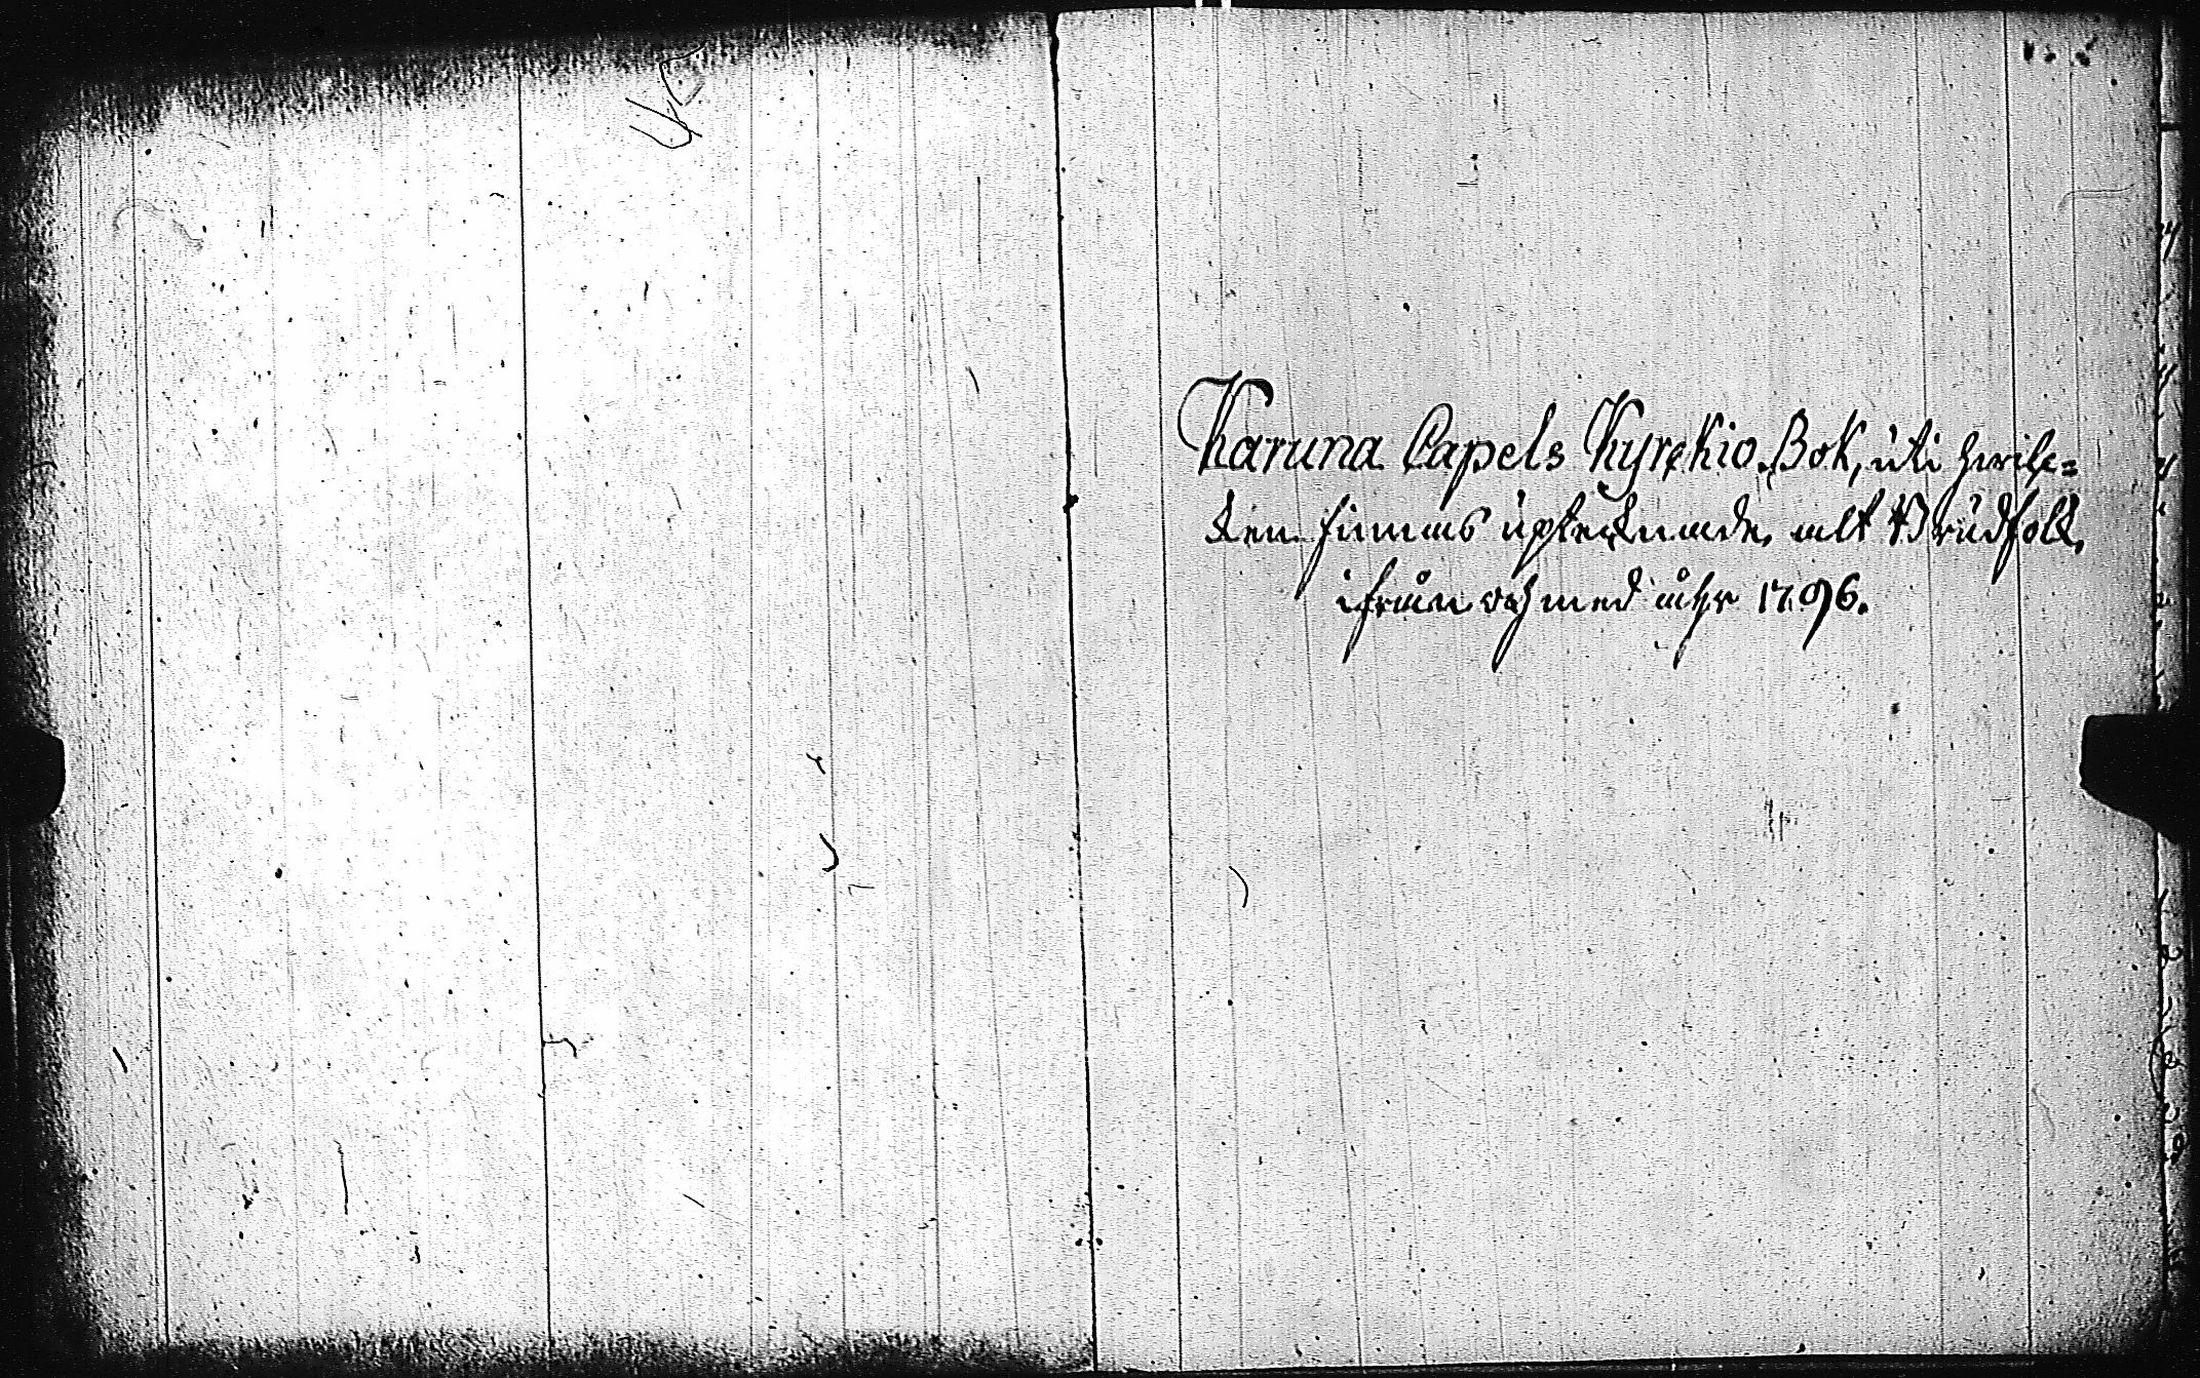 Karuna Capels Kyrckio Bok, uti hvilc=
ken finnas upteknade alt Brudfolk,
ifrån och med åhr 1796.